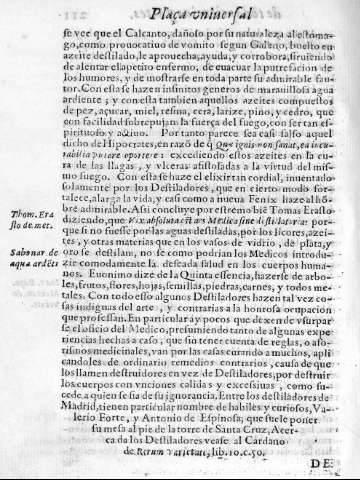 Plaça vniuersal
se vee que el Calcanto, dañoso por su naturaleza al estomago, como prouocatiuo de vomito segun Galeno, buelto en
azeite destilado, le aprouecha, ayuda, y corrobora, siruiendo
de alentar el apetito enfermo, de euacuar la putrefacion de
los humores, y de mostrarse en toda parte su admirable fautor. Con esta se hazen infinitos generos de marauillosa agua
ardiente; y con esta tambien aquellos azeites compuestos
de pez, açucar, miel, resina, cera, larize, pino, y cedro, que
con facilidad sobrepujan la fuerça del fuego, con ser tan espirituoso y actiuo. Por tanto parece sea casi falso aquel
dicho de Hipocrates, en razõ de q̃ Quæ ignis non sanat, ea incurabilia putare oportere: excediendo estos azeites en la cura de las llagas, y vlceras afistoladas a la virtud del mismo fuego. Con esta se haze el elixir tan cordial, inuentado
solamente por los Destiladores, que en cierto modo fortalece, alarga la vida, y casi como a nueua Fenix haze al hõbre admirable. Assi concluye por estremo biẽ Tomas Erasto
Thom. Erasto de. met.
diziendo, que Vix absoluta est ars Medica sine distilatoria: porque si no fuesse por las aguas destiladas, por los licores, azeites, y otras materias que en los vasos de vidrio, de plata, y
Sabonar de aqua ardẽte
oro se destilan, no sè como podrian los Medicos introduzir comodamente la deseada salud en los cuerpos humanos. Euonimo dize de la Quinta essencia, hazerse de arboles, frutos, flores, hojas, semillas, piedras, carnes, y todos metales. Con todo esso algunos Destiladores hazen tal vez cosas indignas del arte, y contrarias a la honrosa ocupacion
que professan. En particular ay pocos que dexen de vsurparse el oficio del Medico, presumiendo tanto de algunas experiencias hechas a caso, que sin tener cuenta de reglas, o aforismos medicinales, van por las casas curando a muchos, aplicandoles de ordinario remedios contrarios, causa de que
los llamen destruidores en vez de Destiladores, por destruir
los cuerpos con vnciones calidas y excessiuas, como sucede a quien se fia de su ignorancia. Entre los destiladores de
Madrid, tienen particular nombre de habiles y curiosos, Valerio Forte, y Antonio de Espinosa, que suele poner
su mesa al pie de la torre de Santa Cruz. Acerca de los Destiladores vease al Cardano
de Rerum varietati, lib. 10. c. 50.
DE